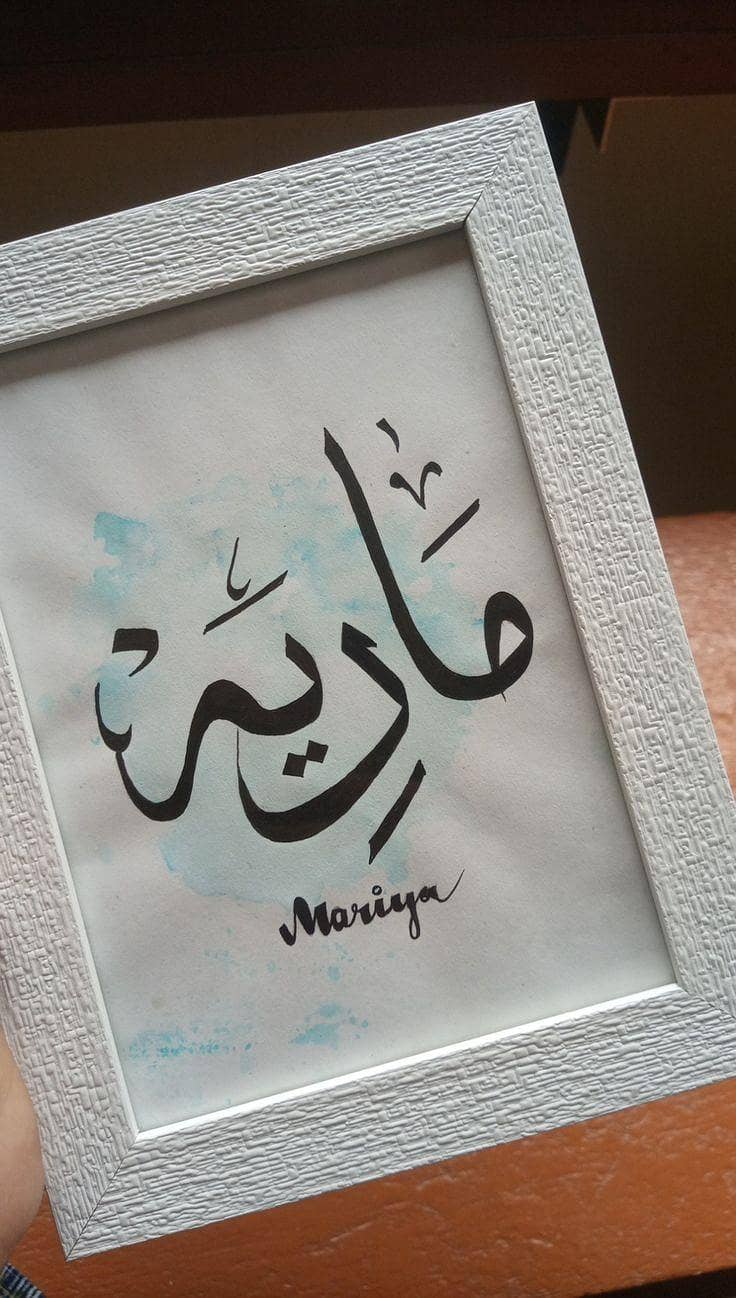 مَارِيَه
Mariya